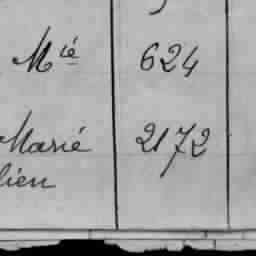 Mié 624
Marié 2172
lien